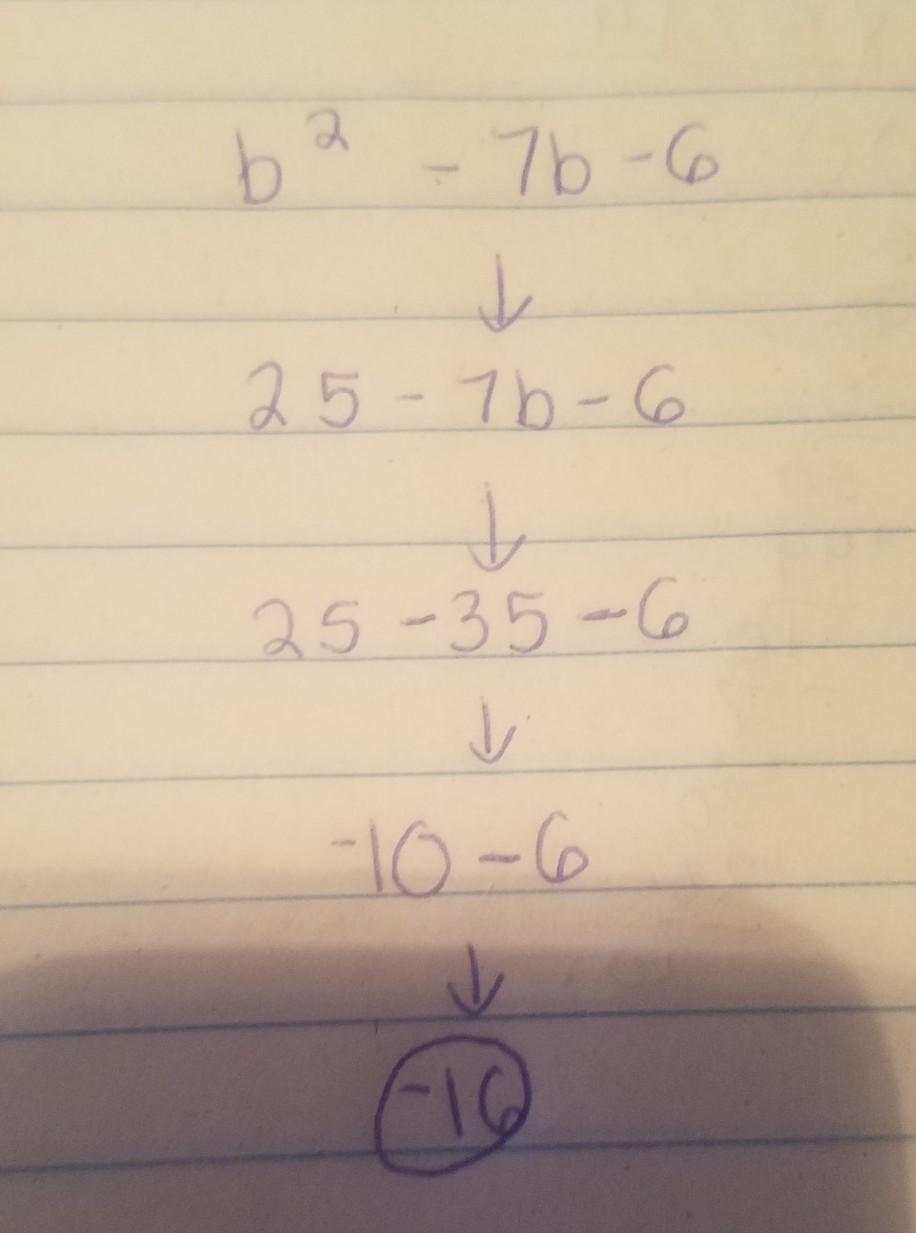 b² - 7b - 6
↓
25 - 7b - 6
↓
25 - 35 - 6
↓
-10 - 6
↓
-16